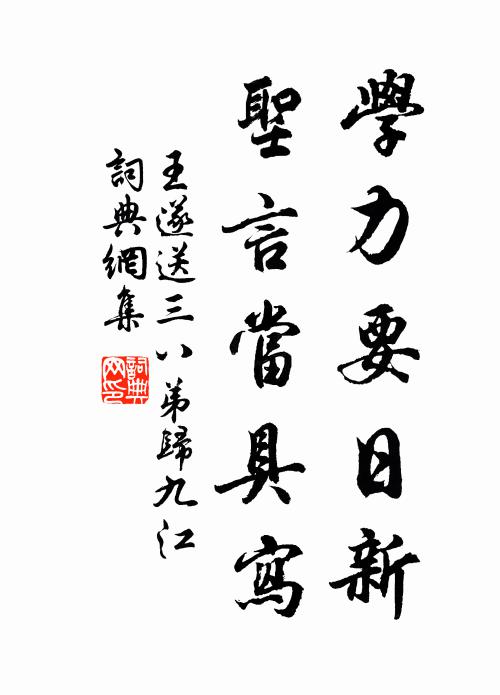 學力要日新
聖言當具寫
王遂送三八弟歸九江
詞典網集
詞典網印